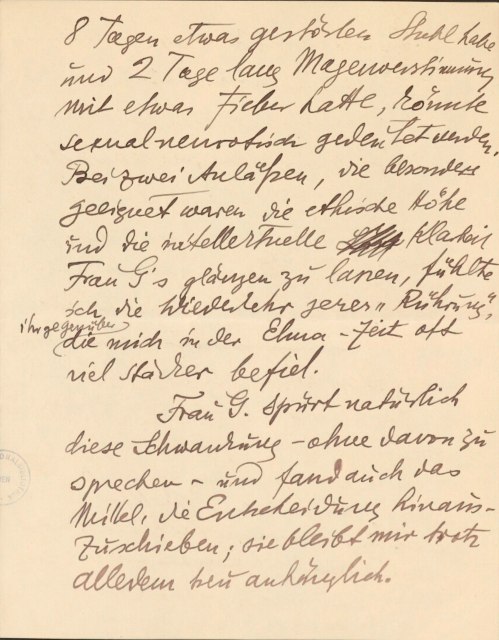 8 Tagen etwas gestörten Stuhl habe
und 2 Tage lang Magenverstimmung
mit etwas Fieber hatte, könnte
sexualneurotisch gedeutet werden.
Bei zwei Anläßen, die besonders
geeignet waren die ethische Höhe
und die intellectuelle Klarheit
Frau G's glänzen zu lassen, fühlte
ich die Wiederkehr jener „Rührung",
ihr gegenüber
die mich in der Elma-Zeit oft
viel stärker befiel.
Frau G. spürt natürlich
diese Schwankung – ohne davon zu
sprechen – und fand auch das
Mittel, die Entscheidung hinaus-
zuschieben; sie bleibt mir trotz
alledem treu anhänglich.